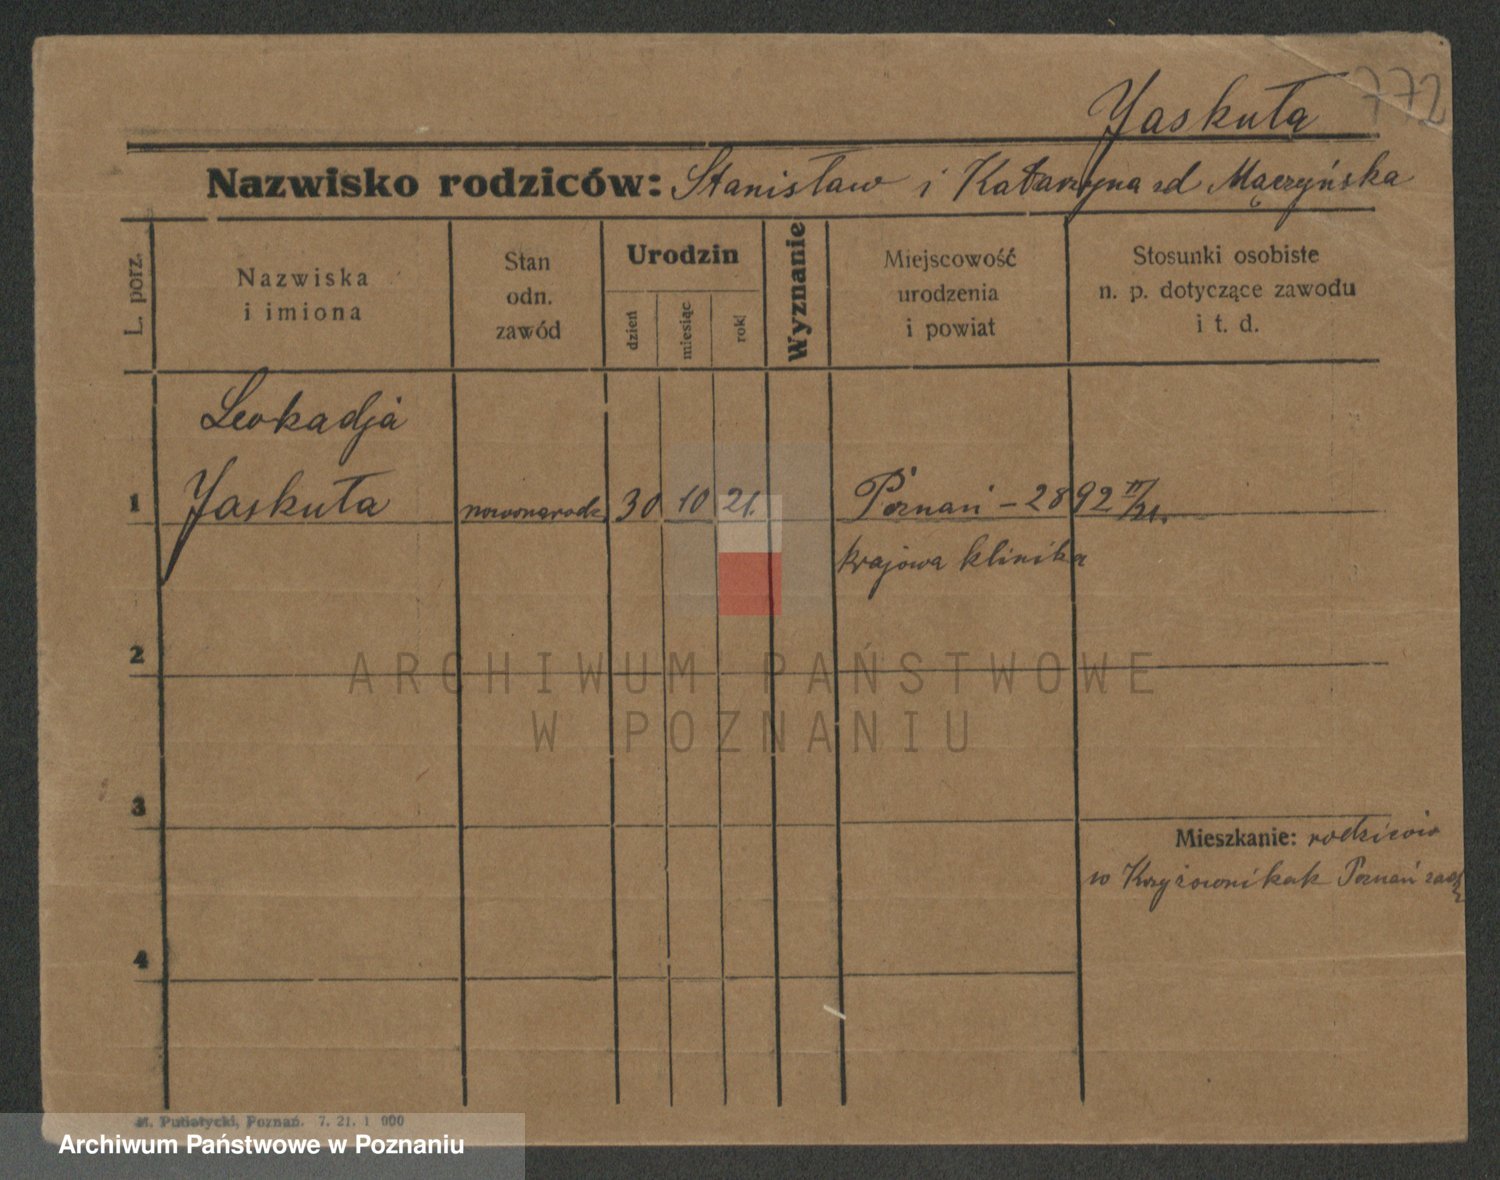 772
Jaskuła
Nazwisko rodziców: Stanisław i Katarzyna zd Mączyńska
L. porz.
Nazwiska
i imiona
Stan
odn.
zawód
Urodzin
dzień
miesiąc
rok
Wyznanie
Miejscowość
urodzenia
i powiat
Stosunki osobiste
n. p. dotyczące zawodu
i t. d.
Leokadja
1 Jaskuła noworodz. 30 10 21. Poznań - 2892 /21.
krajowa klinika
2
ARCHIWUM PAŃSTWOWE
W POZNANIU
3
Mieszkanie: rodziców
w Krzyżownikak Poznań zach
4
M. Putiatycki, Poznań. 7. 21. 1 000
Archiwum Państwowe w Poznaniu